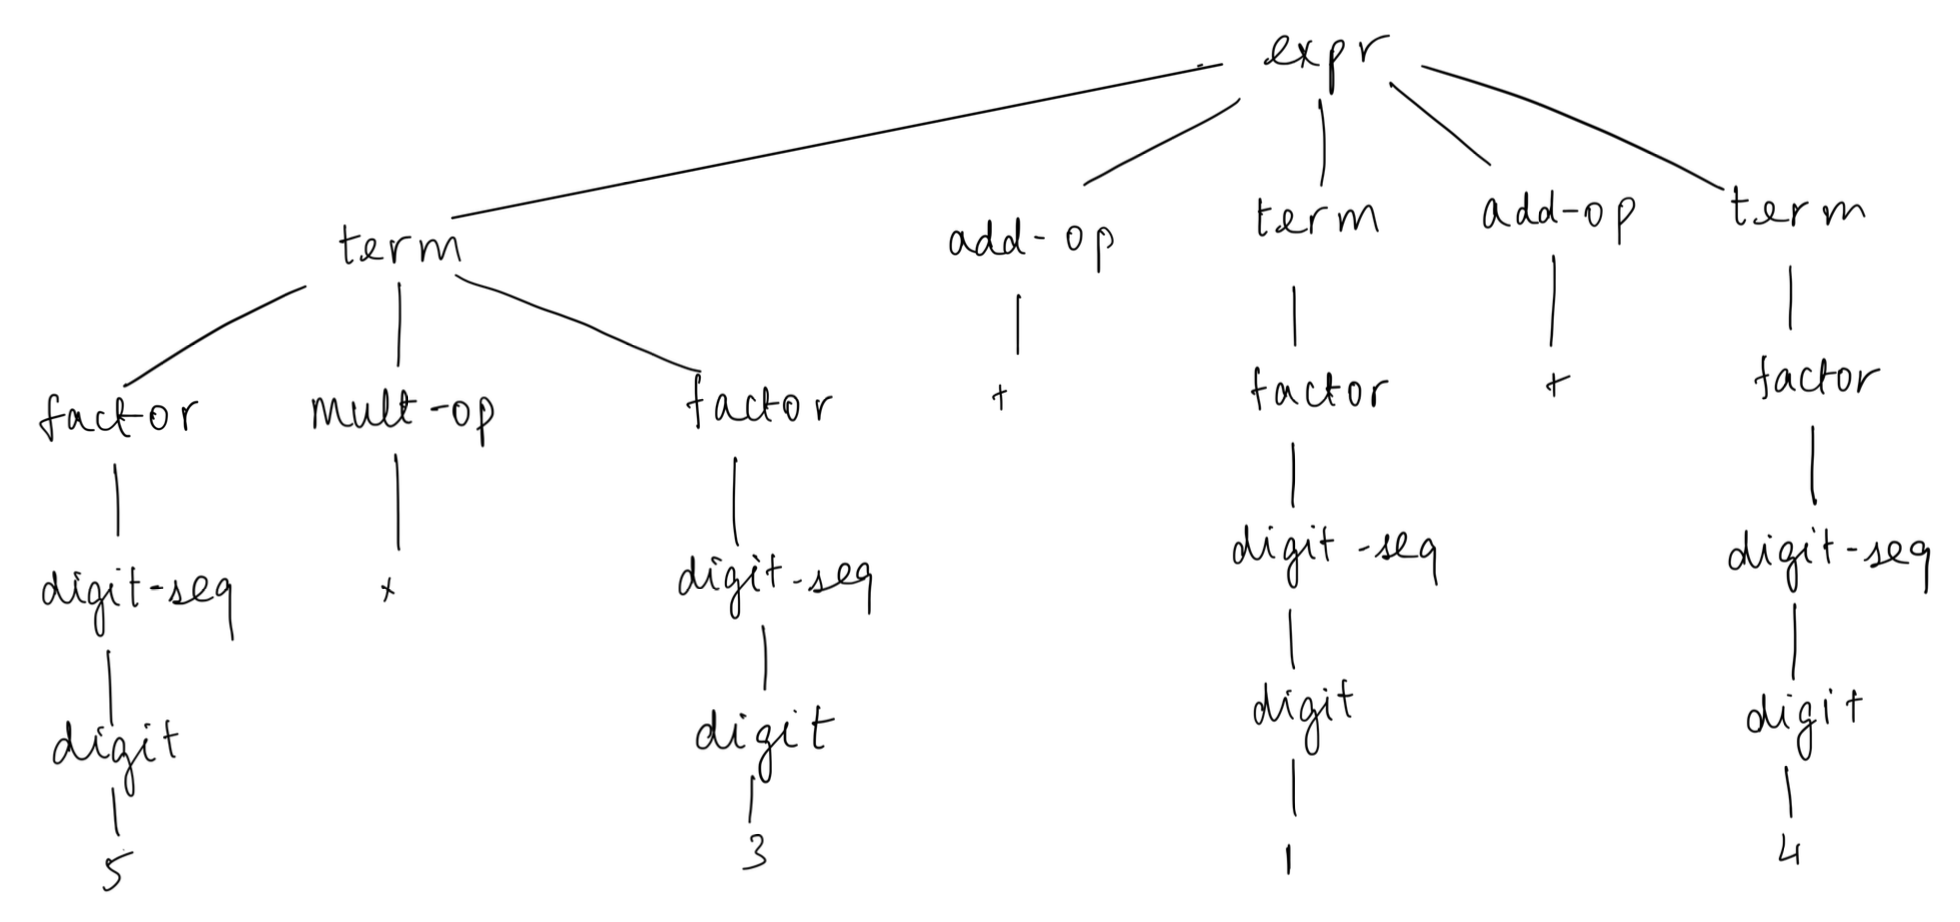 expr
term add-op term add-op term
factor mult-op factor + factor + factor
digit-seq x digit-seq digit-seq digit-seq
digit digit digit digit
5 3 1 4